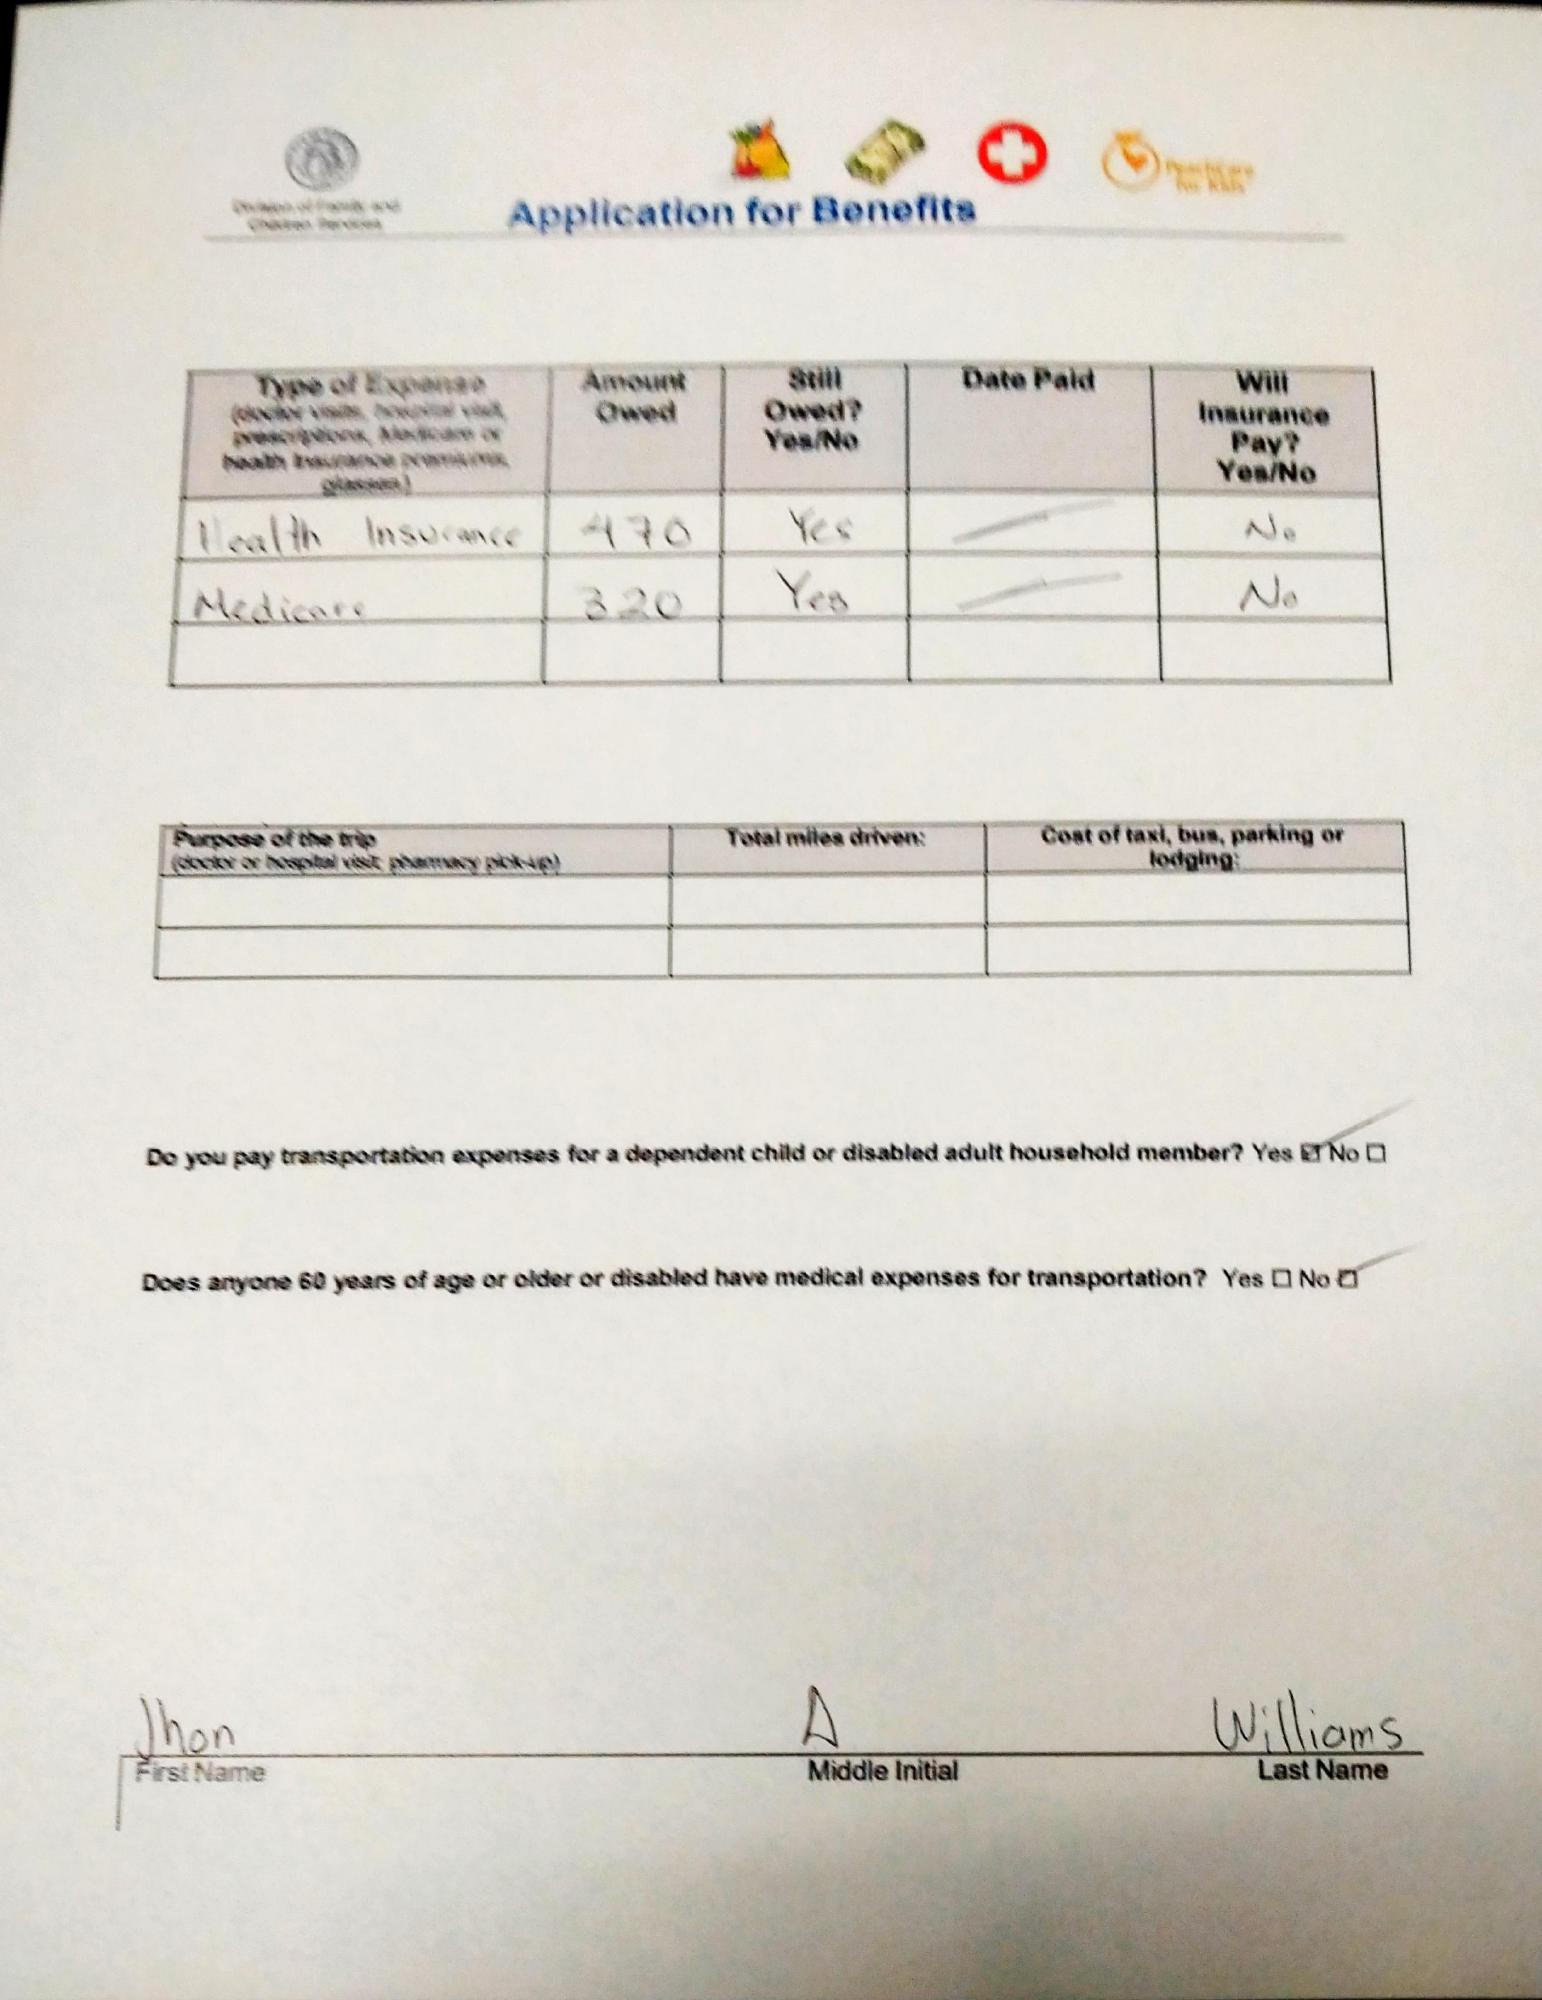 Division of Family and
Children Services
PeachCare
for Kids
Application for Benefits
Type of Expense
(doctor visits, hospital visit,
prescriptions, Medicare or
health insurance premiums,
glasses)
Amount
Owed
Still
Owed?
Yes/No
Date Paid
Will
Insurance
Pay?
Yes/No
Health Insurance 470 Yes No
Medicare 320 Yes No
Purpose of the trip
(doctor or hospital visit, pharmacy pick-up)
Total miles driven:
Cost of taxi, bus, parking or
lodging:
Do you pay transportation expenses for a dependent child or disabled adult household member? Yes ☑ No ☐
Does anyone 60 years of age or older or disabled have medical expenses for transportation? Yes ☐ No ☑
Jhon A Williams
First Name Middle Initial Last Name